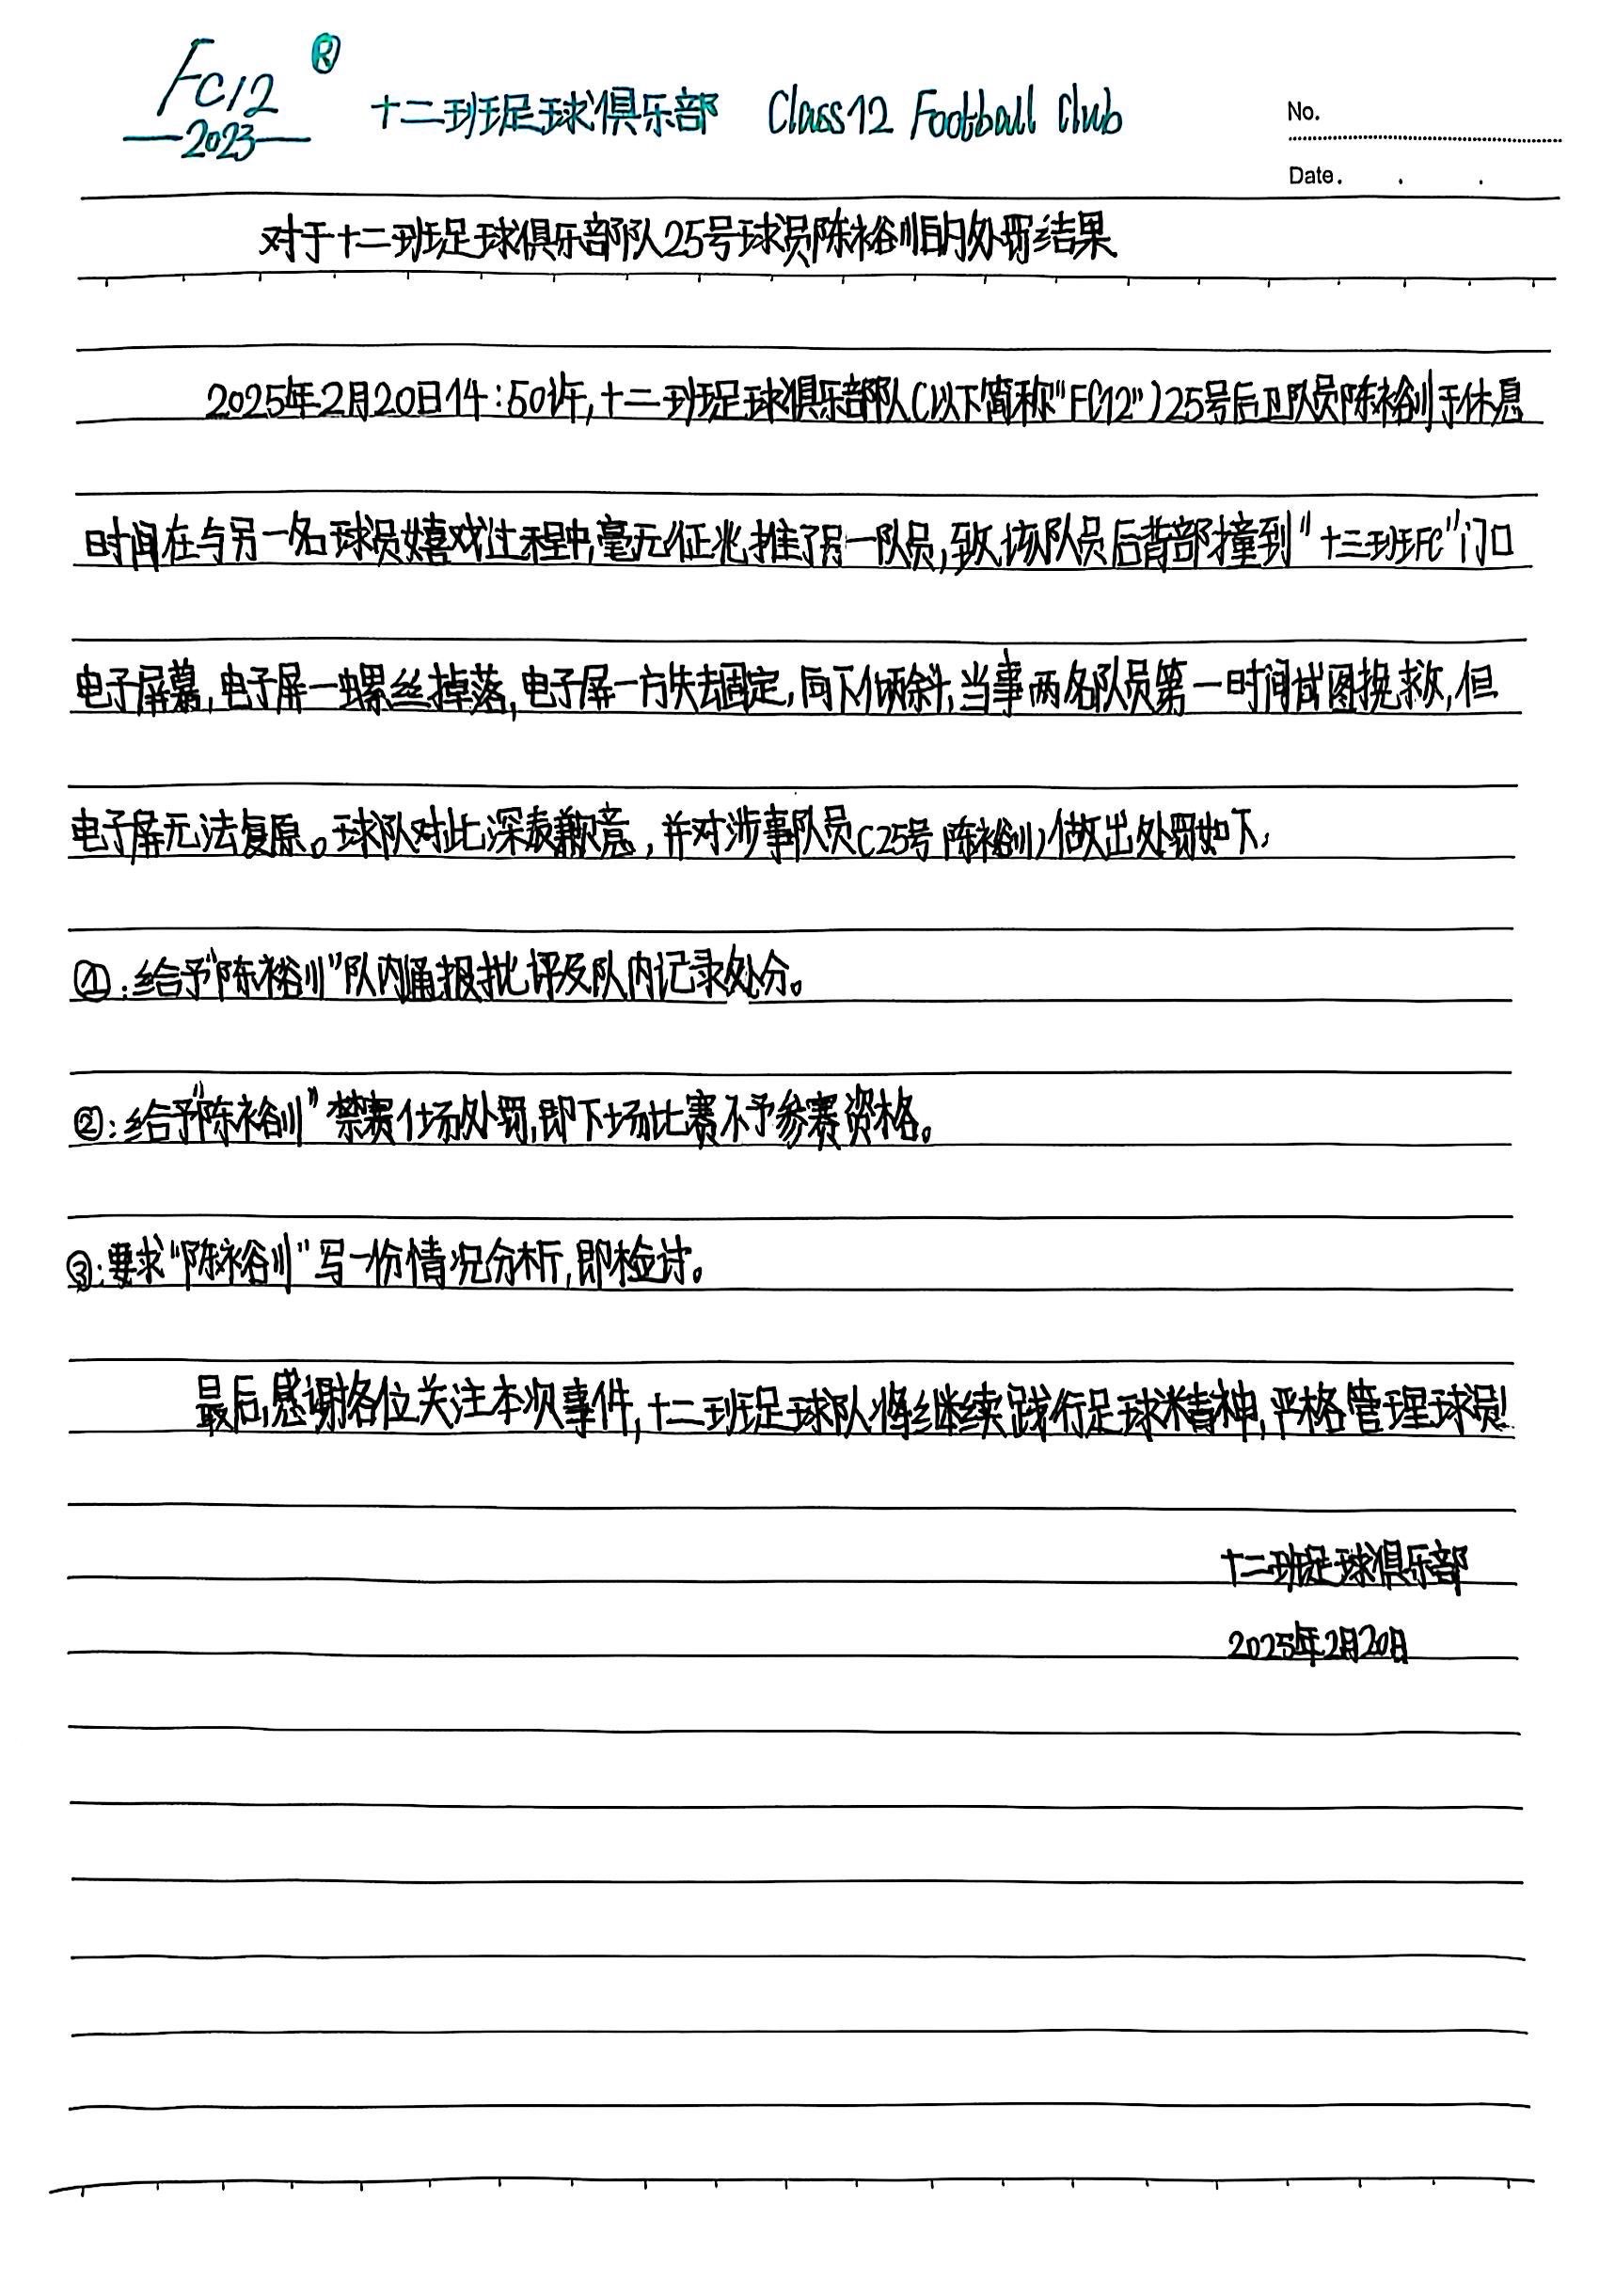 FC12 ®
2023
十二班足球俱乐部 Class12 Football Club
No.
Date.
对于十二班足球俱乐部队25号球员陈裕川的处罚结果
2025年2月20日14:50许,十二班足球俱乐部队(以下简称"FC12")25号后卫队员陈裕川于休息
时间在与另一名球员嬉戏过程中,毫无征兆推了另一队员,致该队员后背部撞到"十三班FC"门口
电子屏幕,电子屏一螺丝掉落,电子屏一方失去固定,向下倾斜,当事两名队员第一时间试图挽救,但
电子屏无法复原。球队对此深表歉意,并对涉事队员(25号陈裕川)做出处罚如下,
①:给予"陈裕川"队内通报批评及队内记录处分。
②:给予"陈裕川"禁赛1场处罚,即下场比赛不予参赛资格。
③:要求"陈裕川"写一份情况分析,即检讨。
最后,感谢各位关注本次事件,十二班足球队将继续践行足球精神,严格管理球员!
十二班足球俱乐部
2025年2月20日